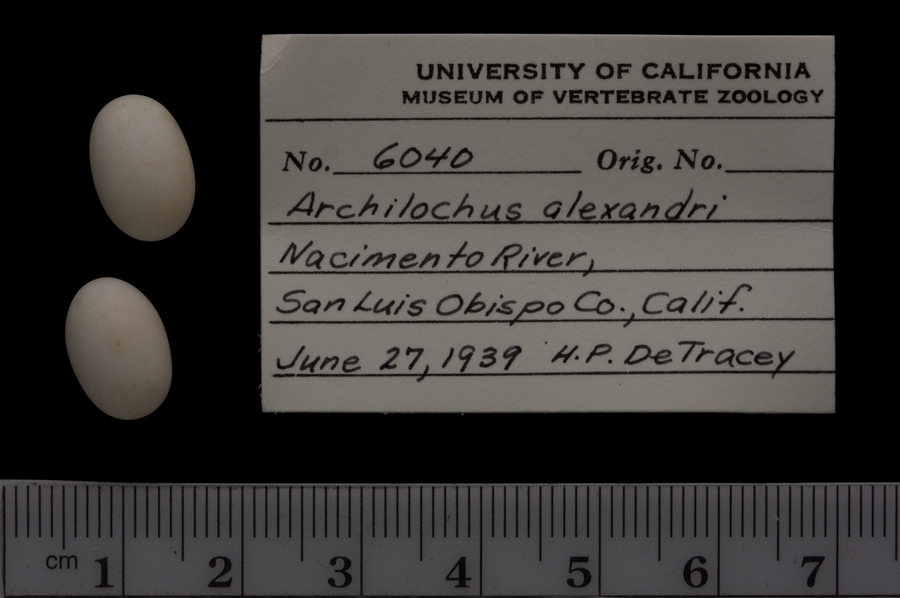 UNIVERSITY OF CALIFORNIA
MUSEUM OF VERTEBRATE ZOOLOGY
No. 6040 Orig. No.
Archilochus alexandri
Nacimento River,
San Luis Obispo Co., Calif.
June 27, 1939 H.P. DeTracey
cm 1 2 3 4 5 6 7